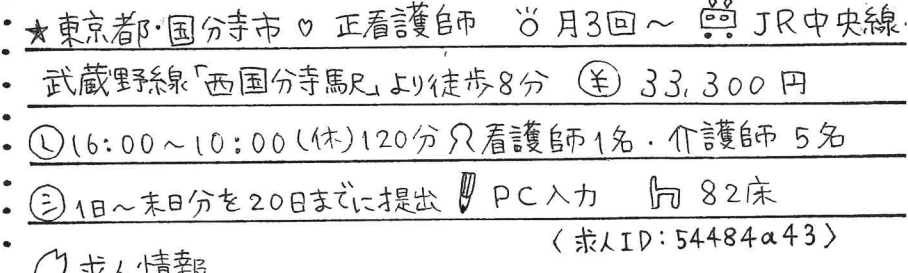 ★東京都・国分寺市♡ 正看護師 月3回～ JR中央線・
武蔵野線「西国分寺駅」より徒歩8分 ¥ 33,300円
16:00～10:00(休)120分 看護師1名・介護師 5名
1日～末日分を20日までに提出 PC入力 82床
〈求人ID:54484a43〉
求人情報